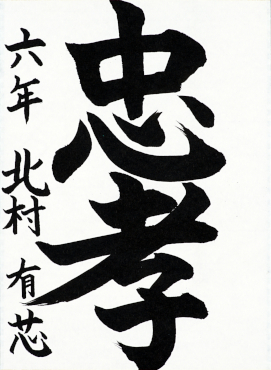 忠孝
六年 北村 有芯